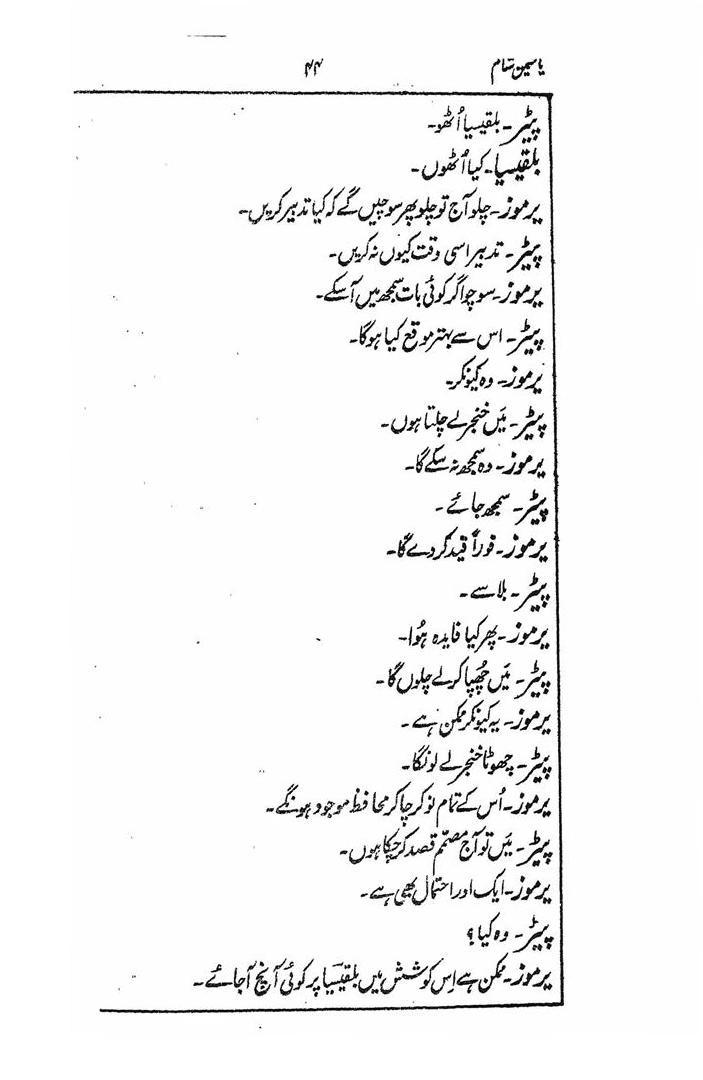 یاسمین شام
۴۴
پیٹر۔ بلقیسیا اُٹھو۔
بلقیسیا۔ کیا اُٹھوں۔
یرموز۔ چلو آج تو چلو پھر سوچیں گے کہ کیا تدبیر کریں۔
پیٹر۔ تدبیر اسی وقت کیوں نہ کریں۔
یرموز۔ سوچو اگر کوئی بات سمجھ میں آسکے۔
پیٹر۔ اس سے بہتر موقع کیا ہوگا۔
یرموز۔ وہ کیونکر۔
پیٹر۔ مَیں خنجر لے چلتا ہوں۔
یرموز۔ وہ سمجھ نہ سکے گا۔
پیٹر۔ سمجھ جائے۔
یرموز۔ فوراً قید کر دے گا۔
پیٹر۔ بلا سے۔
یرموز۔ پھر کیا فایدہ ہُوا۔
پیٹر۔ مَیں چُھپا کر لے چلوں گا۔
یرموز۔ یہ کیونکر ممکن ہے۔
پیٹر۔ چھوٹا خنجر لے لونگا۔
یرموز۔ اُس کے تمام نوکر چاکر محافظ موجود ہونگے۔
پیٹر۔ مَیں تو آج مصمّم قصد کر چکا ہوں۔
یرموز۔ ایک اور احتمال بھی ہے۔
پیٹر۔ وہ کیا؟
یرموز۔ ممکن ہے اِس کوشش میں بلقیسیا پر کوئی آنچ آجائے۔